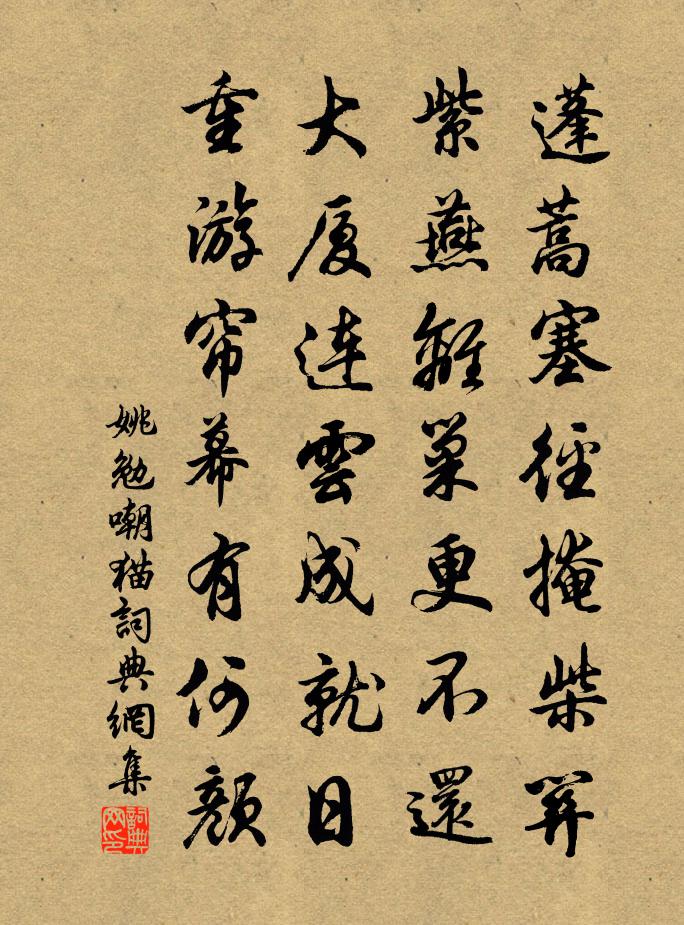 蓬蒿塞徑掩柴關
紫燕離巢更不還
大厦連雲成就日
重游帘幕有何顔
姚勉嘲猫詞典網集
詞典網印